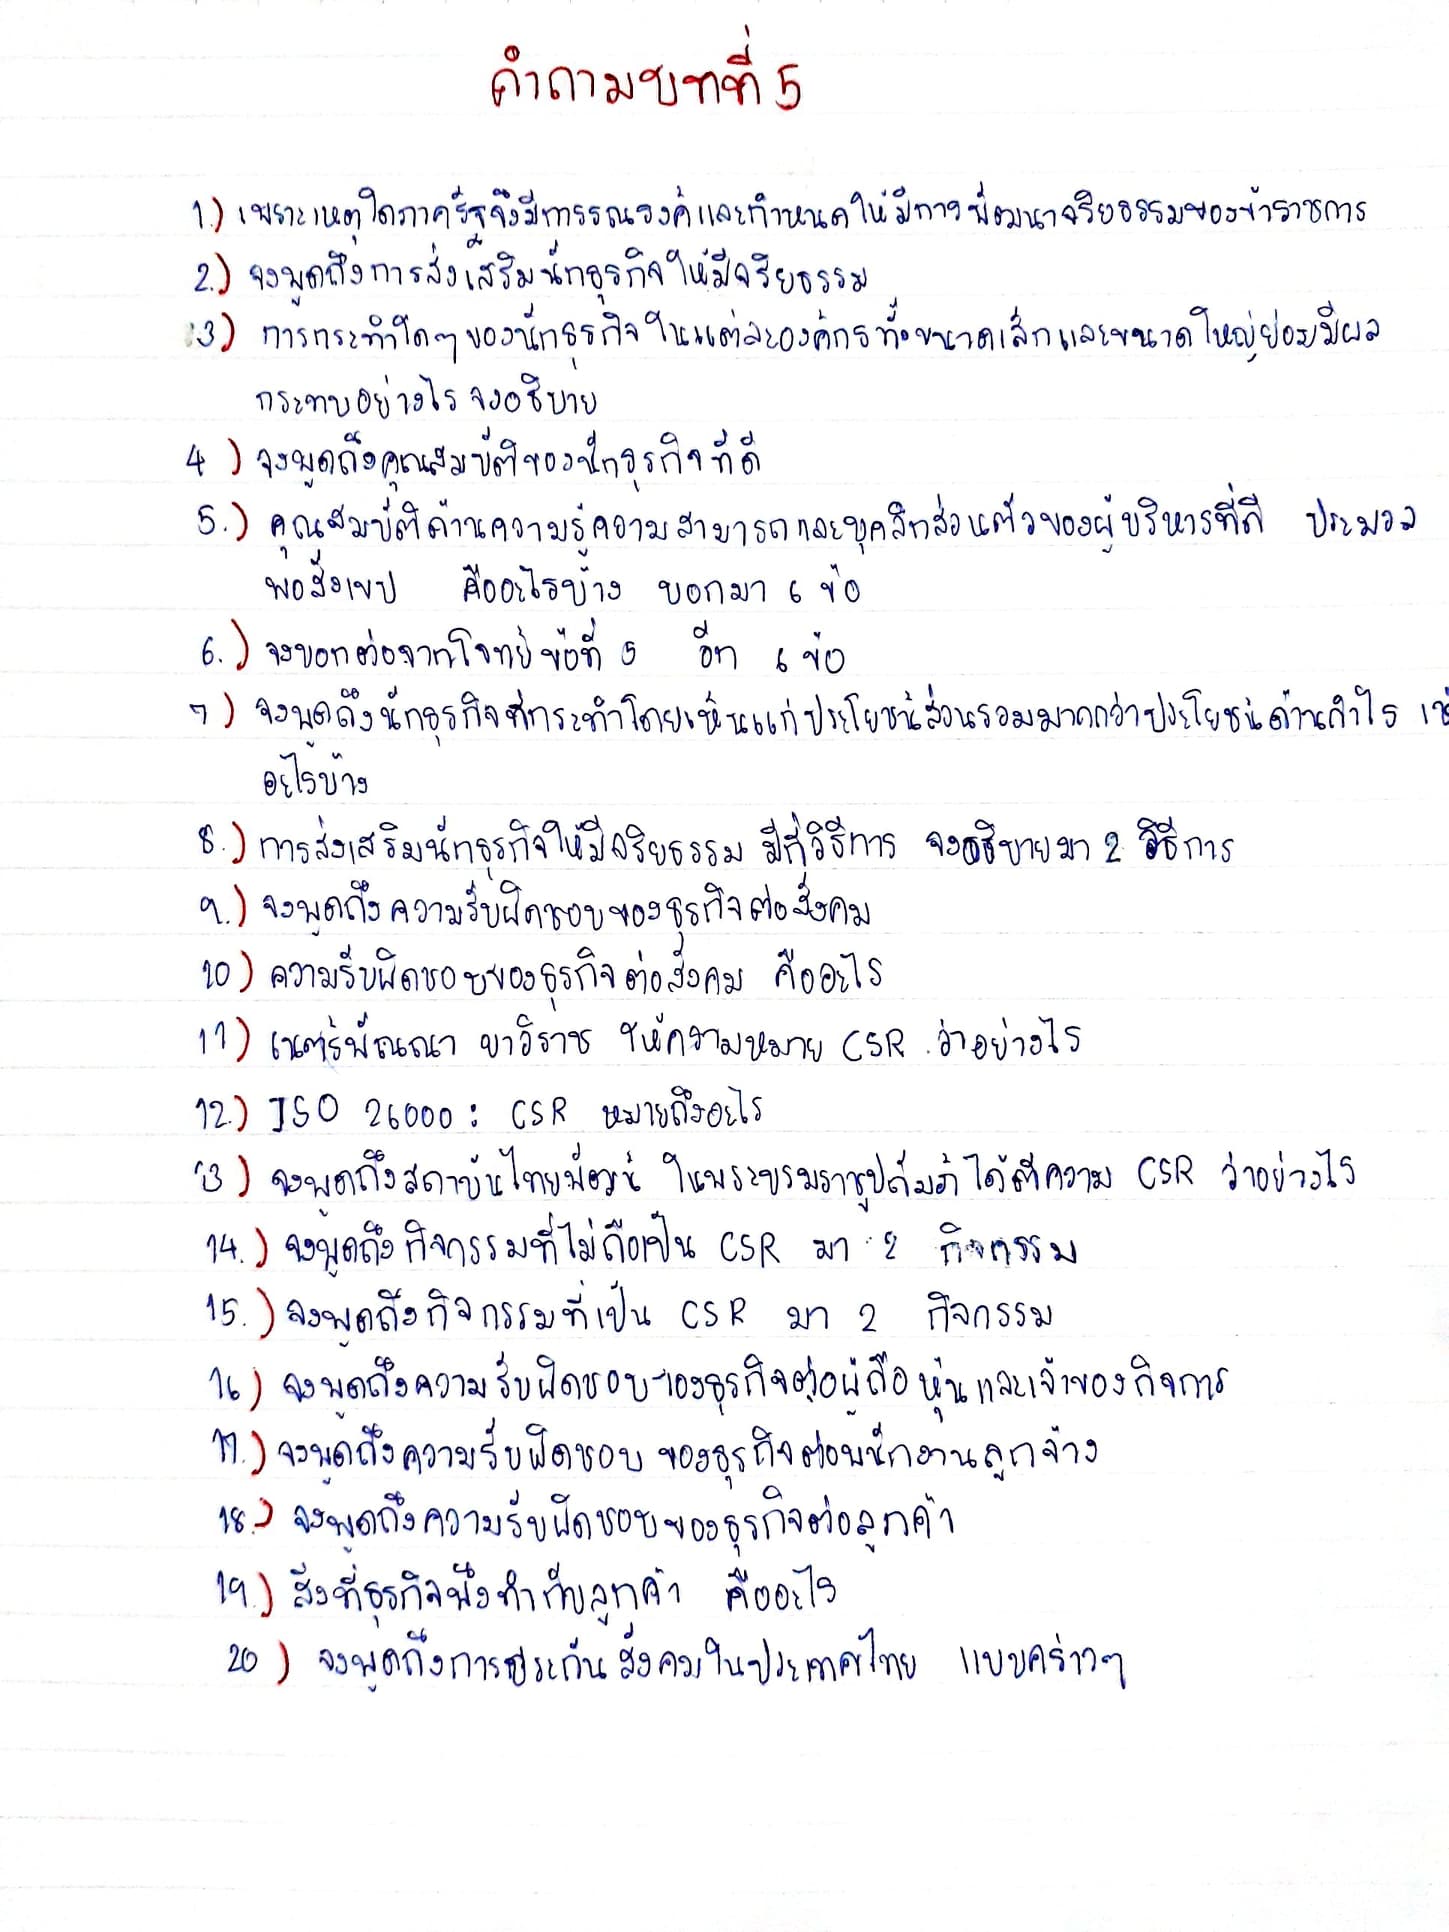 คำถามบทที่ 5
1.) เพราะเหตุใดภาครัฐจึงมีการรณรงค์และกำหนดให้มีการพัฒนาจริยธรรมของข้าราชการ
2.) จงพูดถึงการส่งเสริมนักธุรกิจให้มีจริยธรรม
3) การกระทำใดๆของนักธุรกิจในแต่ละองค์กรทั้งขนาดเล็กและขนาดใหญ่ย่อมมีผล
กระทบอย่างไร จงอธิบาย
4) จงพูดถึงคุณสมบัติของนักธุรกิจที่ดี
5.) คุณสมบัติด้านความรู้ความสามารถและบุคลิกส่วนตัวของผู้บริหารที่ดี ประมวล
พอสังเขป คืออะไรบ้าง บอกมา 6 ข้อ
6.) จงบอกต่อจากโจทย์ข้อที่ 5 อีก 6 ข้อ
7) จงพูดถึงนักธุรกิจที่กระทำโดยเห็นแก่ประโยชน์ส่วนรวมมากกว่าประโยชน์ด้านกำไร
อะไรบ้าง
8.) การส่งเสริมนักธุรกิจให้มีจริยธรรม มีกี่วิธีการ จงอธิบายมา 2 วิธีการ
9.) จงพูดถึงความรับผิดชอบของธุรกิจต่อสังคม
10) ความรับผิดชอบของธุรกิจต่อสังคม คืออะไร
11) เนตร์พัณณา ยาวิราช ให้ความหมาย CSR ว่าอย่างไร
12.) ISO 26000: CSR หมายถึงอะไร
13) จงพูดถึงสถาบันไทยพัฒน์ ในพระบรมราชูปถัมภ์ ได้ตีความ CSR ว่าอย่างไร
14.) จงพูดถึงกิจกรรมที่ไม่ถือเป็น CSR มา 2 กิจกรรม
15.) จงพูดถึงกิจกรรมที่เป็น CSR มา 2 กิจกรรม
16) จงพูดถึงความรับผิดชอบของธุรกิจต่อผู้ถือหุ้นและเจ้าของกิจการ
17.) จงพูดถึงความรับผิดชอบของธุรกิจต่อพนักงานลูกจ้าง
18.) จงพูดถึงความรับผิดชอบของธุรกิจต่อลูกค้า
19.) สิ่งที่ธุรกิจพึงทำกับลูกค้า คืออะไร
20) จงพูดถึงการประกันสังคมในประเทศไทย แบบคร่าวๆ